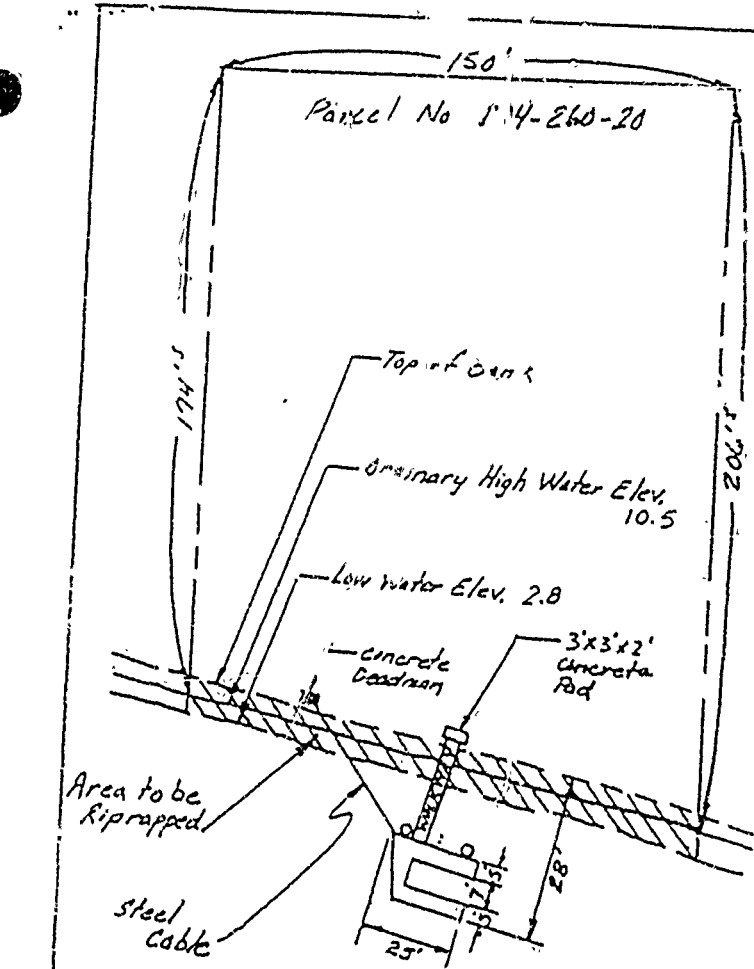 150'
Parcel No
Top of Bank
174'±
206'±
Ordinary High Water Elev.
10.5
Low Water Elev. 2.8
Concrete
Deadman
3'x3'x2'
Concrete
Pad
Area to be
Riprapped
Steel
Cable
28'
5'
7'
5'
25'